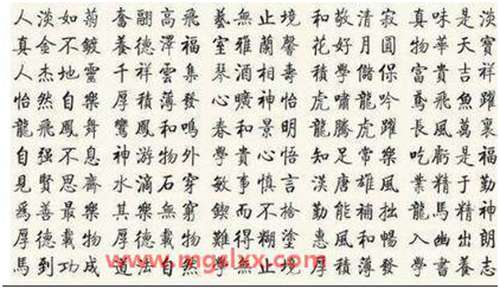 人淡如菊 奮翮高飛 藝無止境 和敬清寂 真味是淡
真金不鍍 養德澤福 室雅蘭馨 花好月圓 物華天寶
人杰地靈 千祥雲集 琴 相壽 積學儲 富貴吉祥
怡然自樂 厚積薄發 心曠神怡 虎嘯龍吟 鳶飛魚躍
龍飛鳳舞 鸞鳳和鳴 春和景明 龍騰虎躍 長風萬裏
自强不息 神游物外 和貴心悟 知足常樂 吃虧是福
見賢思齊 水滴石穿 敏事慎言 漢唐雄風 業精于勤
爲善最樂 其樂無窮 鍥而不捨 勤能補拙 龍馬精神
厚德載物 難得糊塗 惠風和暢 入幽出朗
馬到功成 道法自然 學無止境 厚積薄發 學書養志